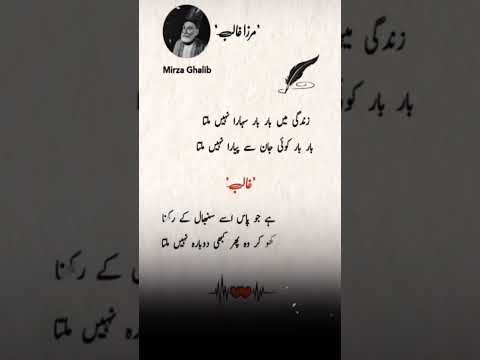 'مرزا غالب'
Mirza Ghalib
زندگی میں بار بار سہارا نہیں ملتا
بار بار کوئی جان سے پیارا نہیں ملتا
'غالب'
ہے جو پاس اسے سنبھال کے رکھنا
کھو کر وہ پھر کبھی دوبارہ نہیں ملتا